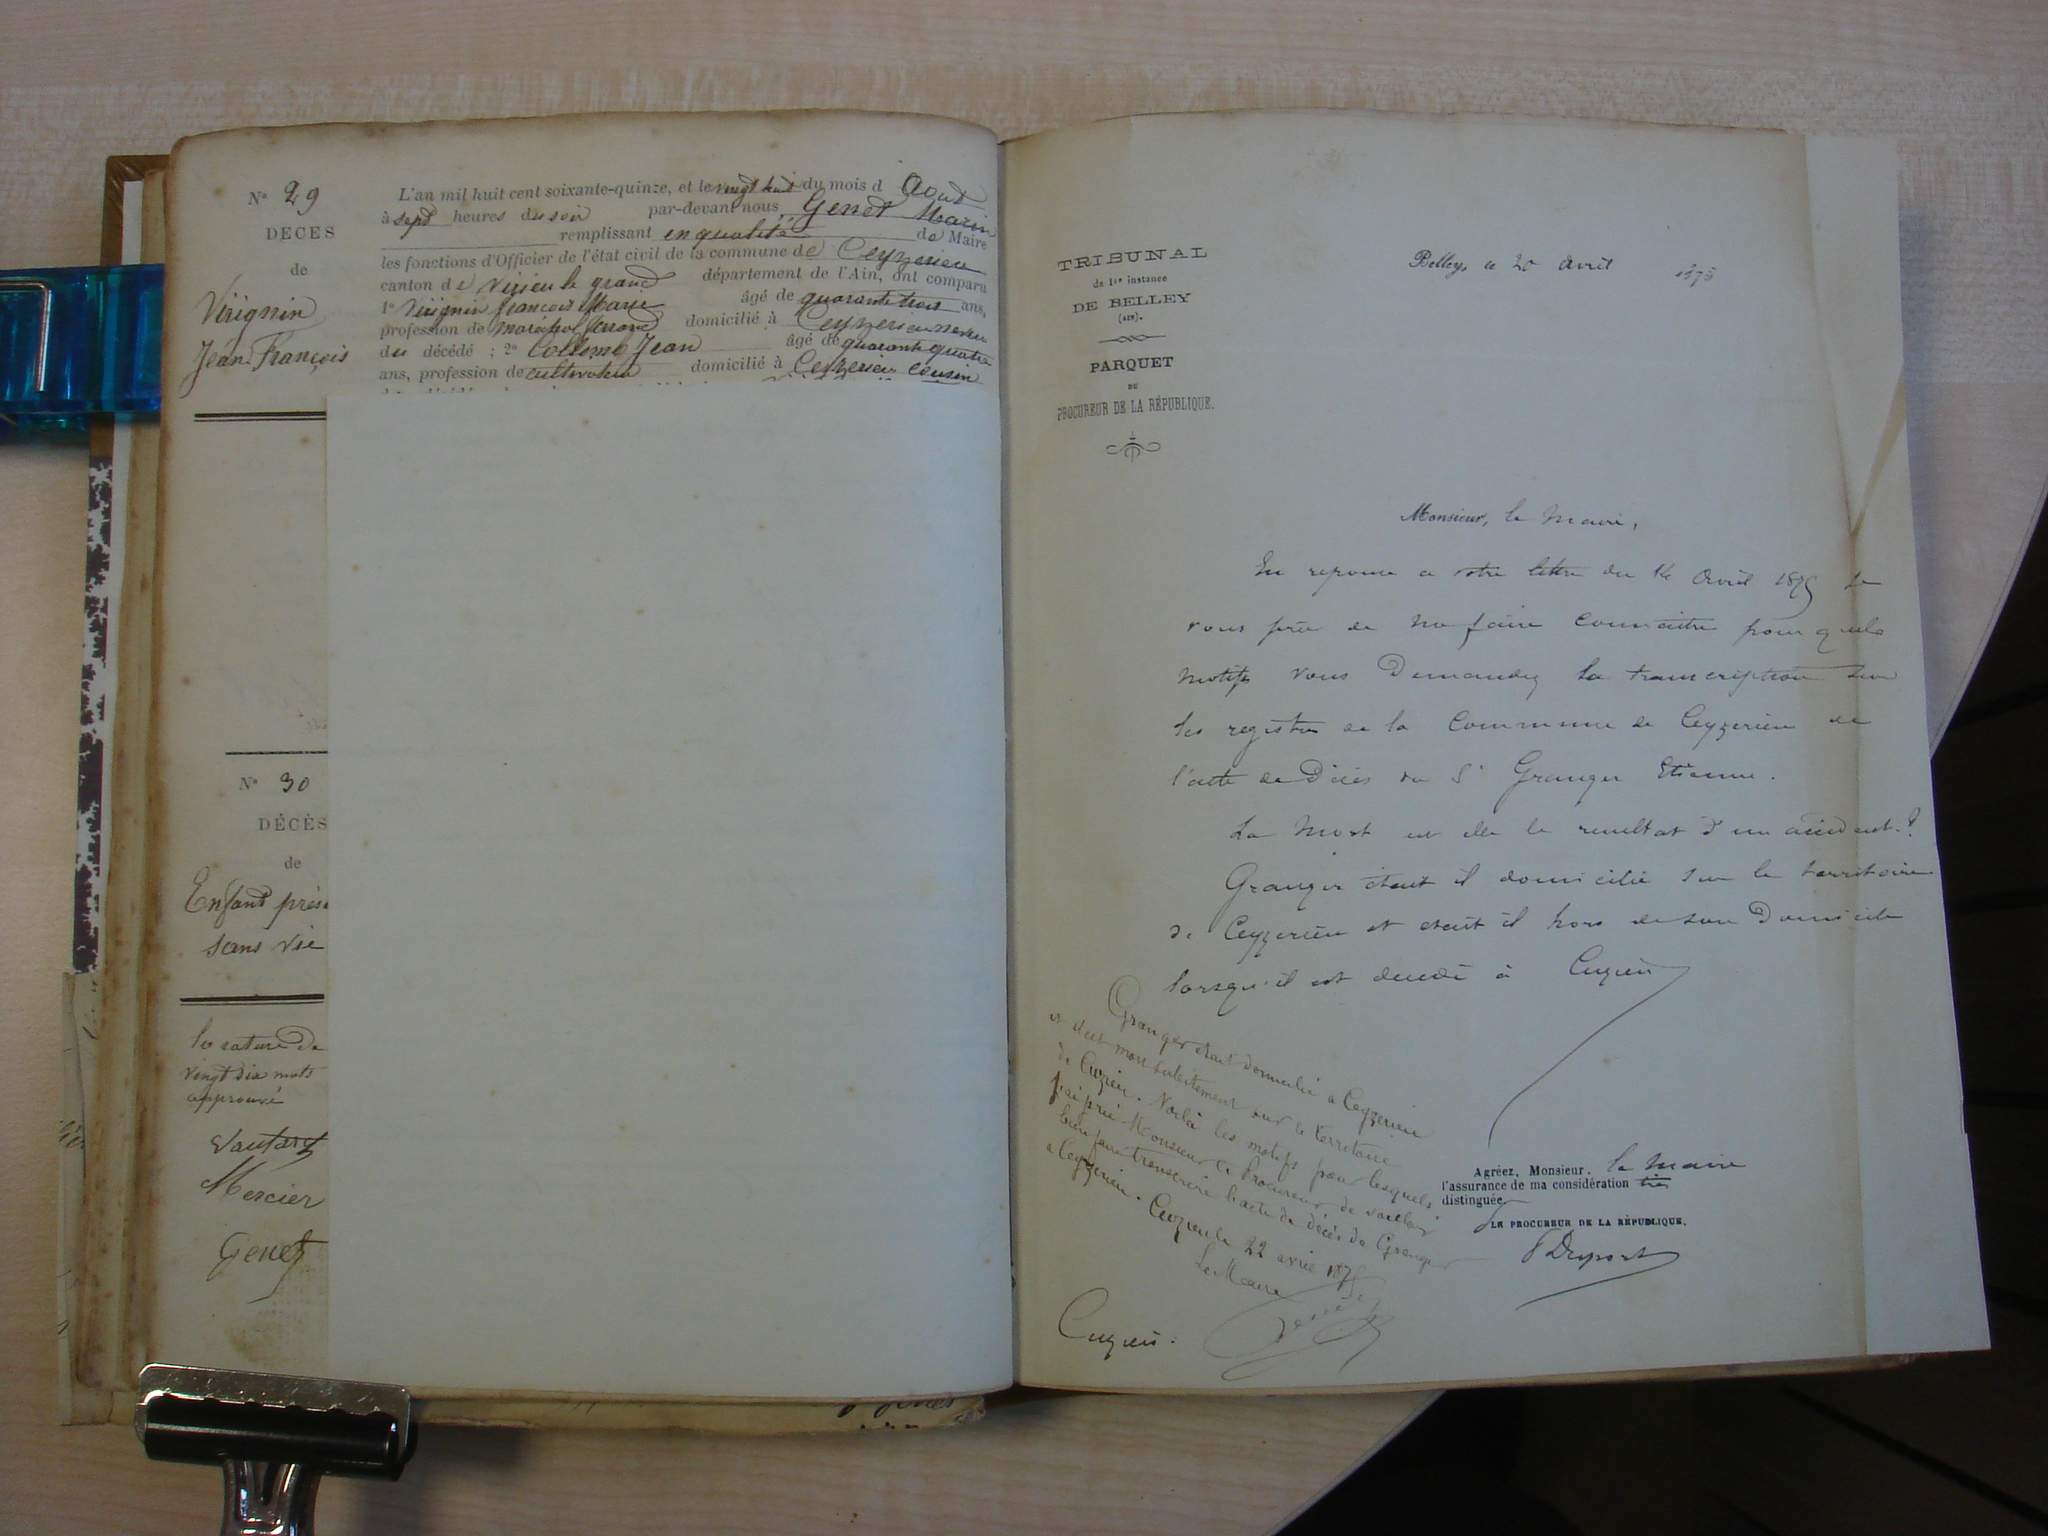 Nº 29
DECES
de
Virignin
Jean François
L'an mil huit cent soixante-quinze, et le vingt huit du mois d Aout
à sept heures du soir par-devant nous Genet Marin
remplissant en qualité de Maire
les fonctions d'Officier de l'état civil de la commune de Ceyzerieu
canton de Virieu le grand département de l'Ain, ont comparu
1º Virignin françois Marie âgé de quarante trois ans,
profession de marechal ferrand domicilié à Ceyzerieu neveu
du décédé ; 2º Collomb Jean âgé de quarante quatre
ans, profession de cultivateur domicilié à Ceyzerieu cousin
Nº 30
DÉCÈS
de
Enfant prés
sans vie
la rature de
vingt dix mots
approuvé
Vautaret
Mercier
Genet
TRIBUNAL
de 1re instance
DE BELLEY
(AIN).
PARQUET
DU
PROCUREUR DE LA RÉPUBLIQUE.
Belley, le 20 Avril 1875
Monsieur, le Maire,
En reponse a votre lettre du 14 Avril 1875 je
vous prie de me faire connaitre pour quels
motifs vous Demandez la transcription sur
les registres de la Commune de Ceyzerieu de
l'acte de Décès du Sr Granger Etienne.
La Mort est elle le resultat d'un accident ?
Granger etait il domicilié sur le territoire
de Ceyzerieu et etait il hors de son Domicile
lorsqu'il est decedé à Cuzieu
Agréez, Monsieur, le Maire
l'assurance de ma considération très
distinguée.
LE PROCUREUR DE LA RÉPUBLIQUE,
Dupont
Granger etait domicilié a Ceyzerieu
et s'est mort subitement sur le territoire
de Cuzieu. Voilà les motifs pour lesquels
j'ai prié Monsieur le Procureur de vouloir
bien faire transcrire l'acte de décès de Granger
a Ceyzerieu. Cuzieu le 22 avril 1875
Le Maire
Cuzieu :